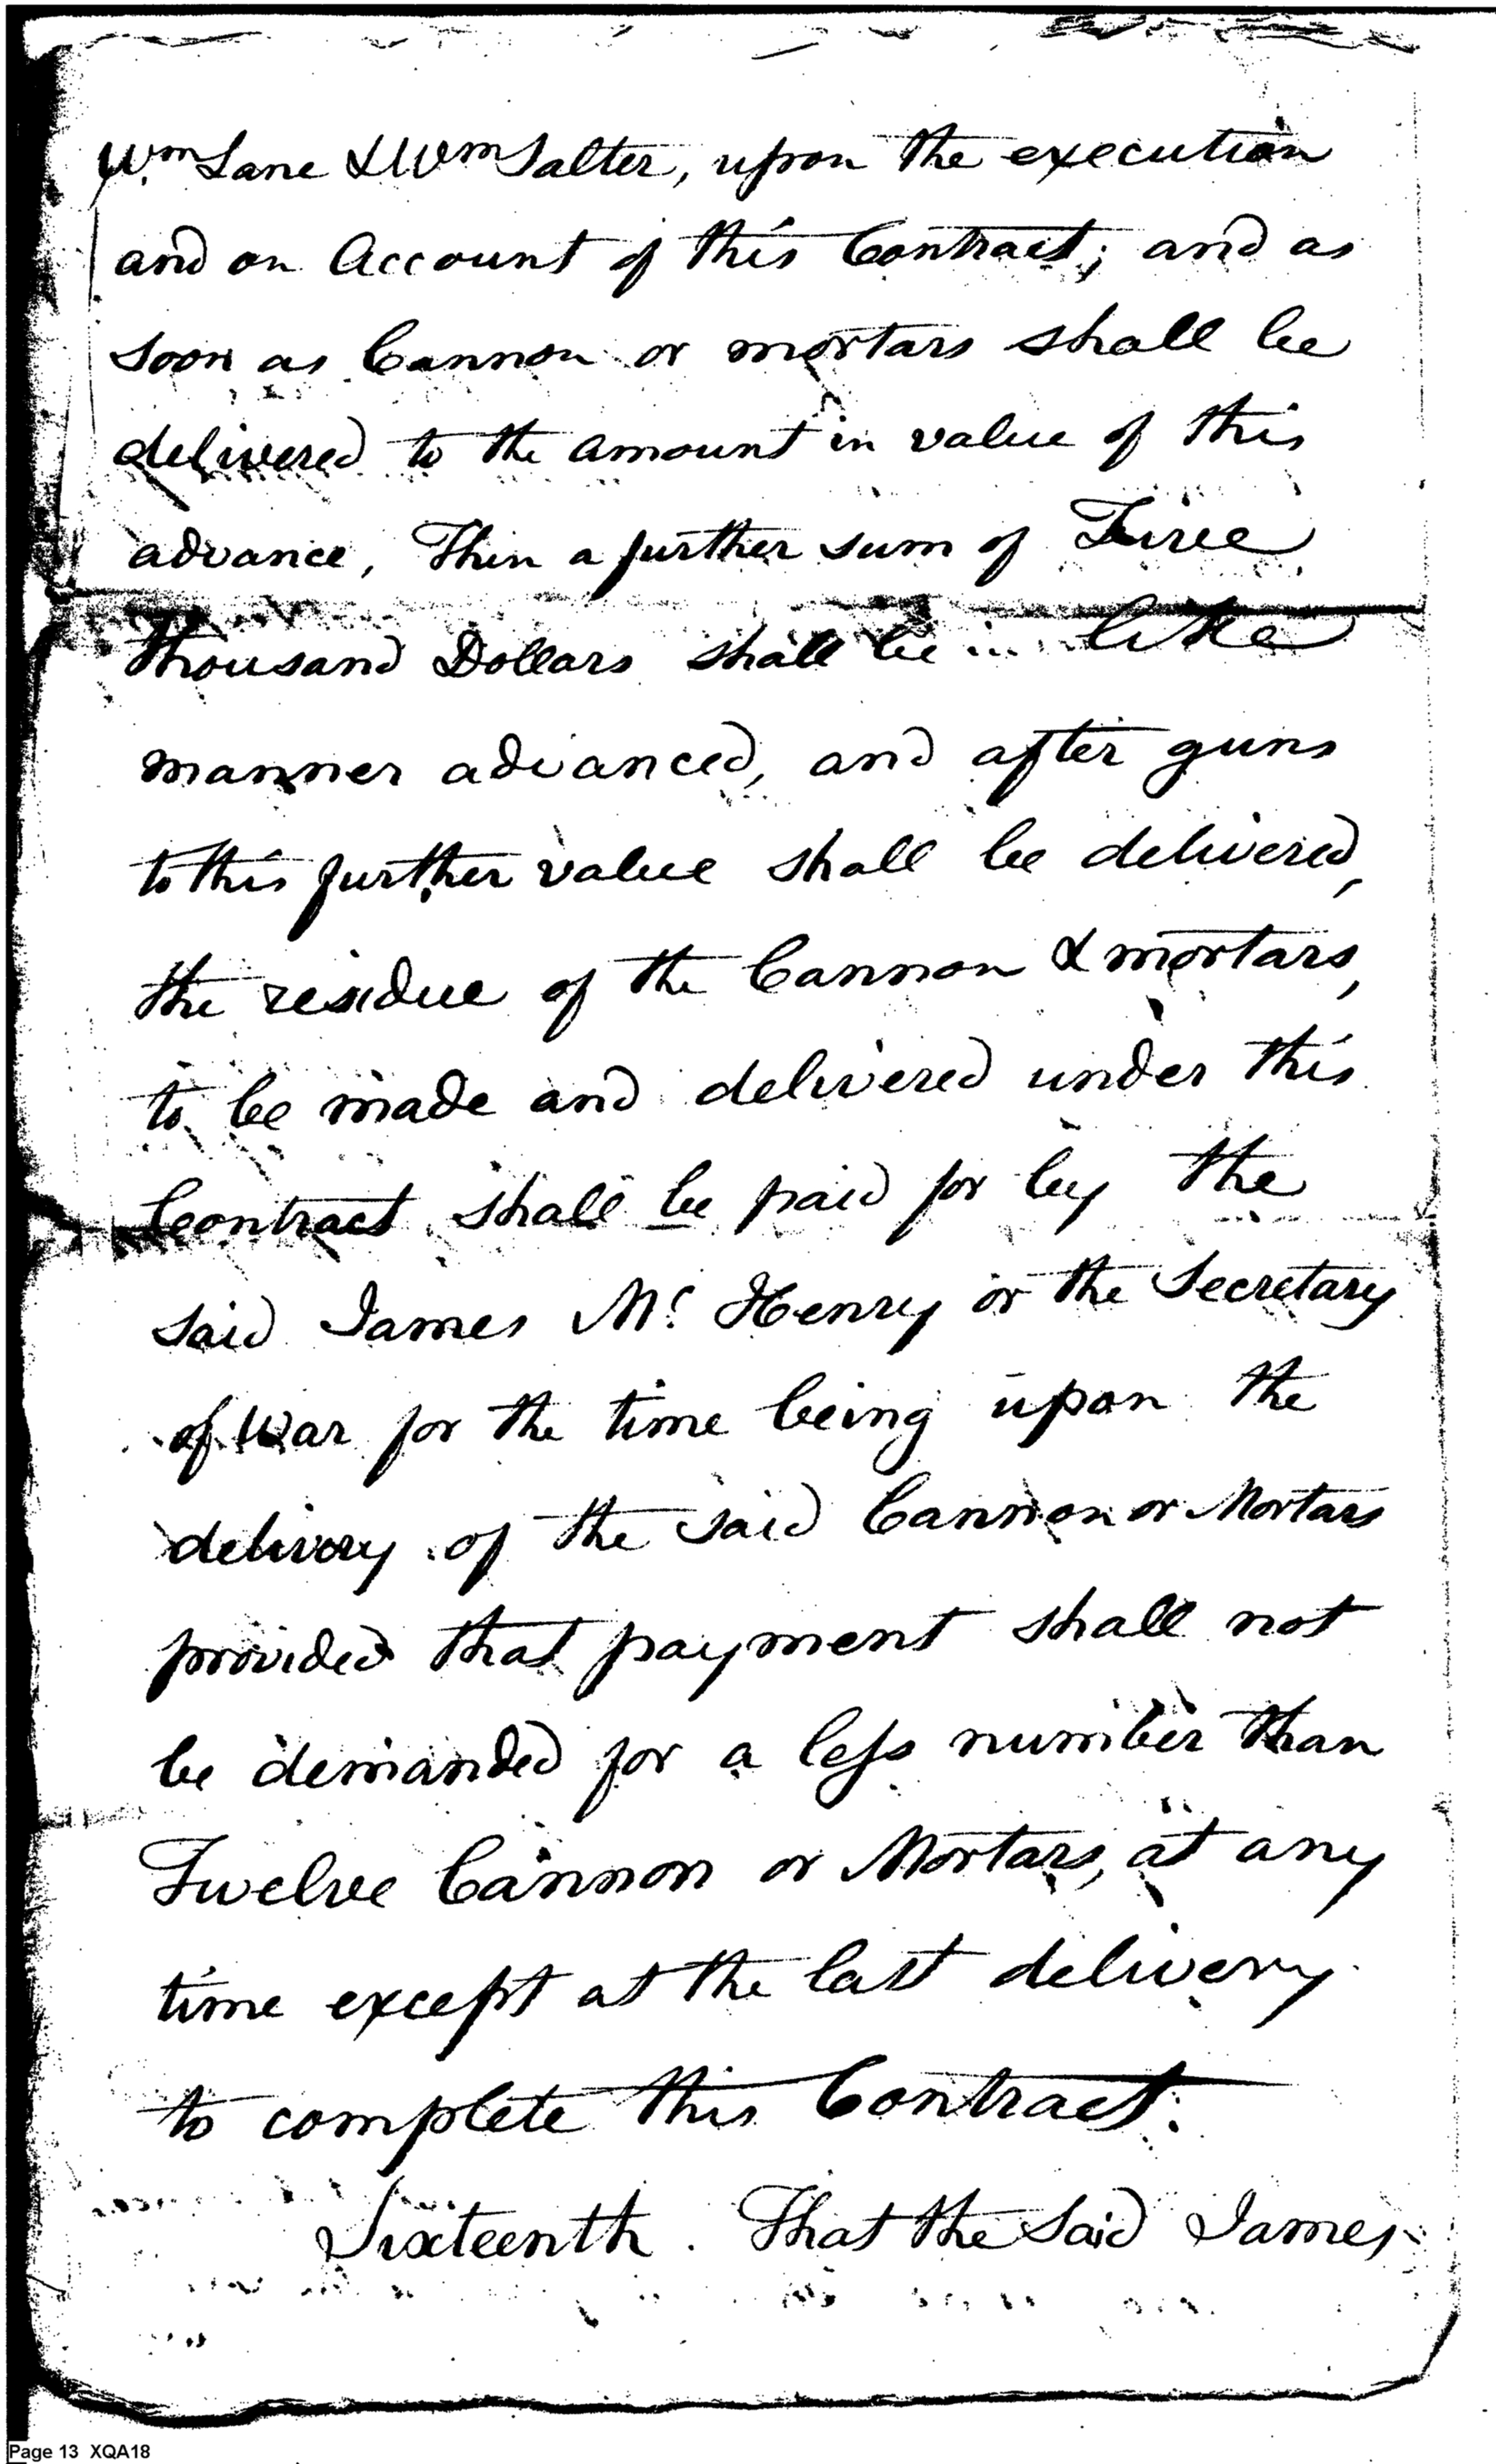 Wm. Lane & Wm Salter, upon the execution
and on Account of this Contract; and as
soon as Cannon or mortars shall be
delivered to the amount in value of this
advance, Then a further sum of Five
thousand Dollars shall be in like
manner advanced, and after guns
to this further value shall be delivered,
the residue of the Cannon & mortars,
to be made and delivered under this
Contract shall be paid for by the
said James Mc. Henry or the Secretary
of War for the time being upon the
delivery of the said Cannon or Mortars
provided that payment shall not
be demanded for a less number than
Twelve Cannon or Mortars, at any
time except at the last delivery
to complete this Contract.
Sixteenth. That the Said James
Page 13 XQA18